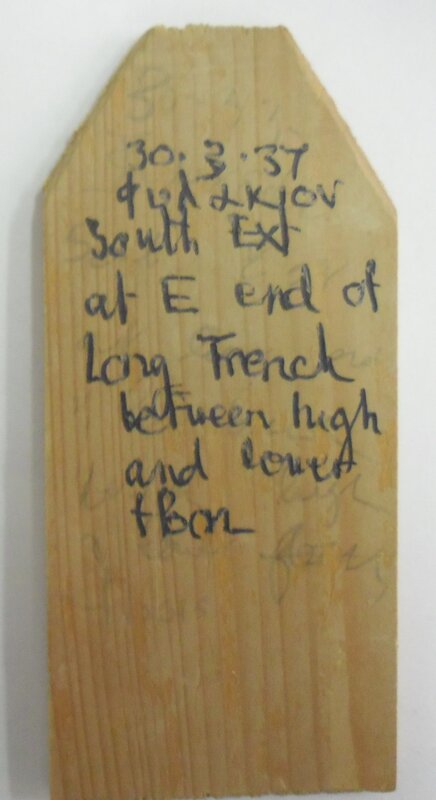 30.3.37
φυλακιον
South Ext
at E end of
Long Trench
between high
and lower